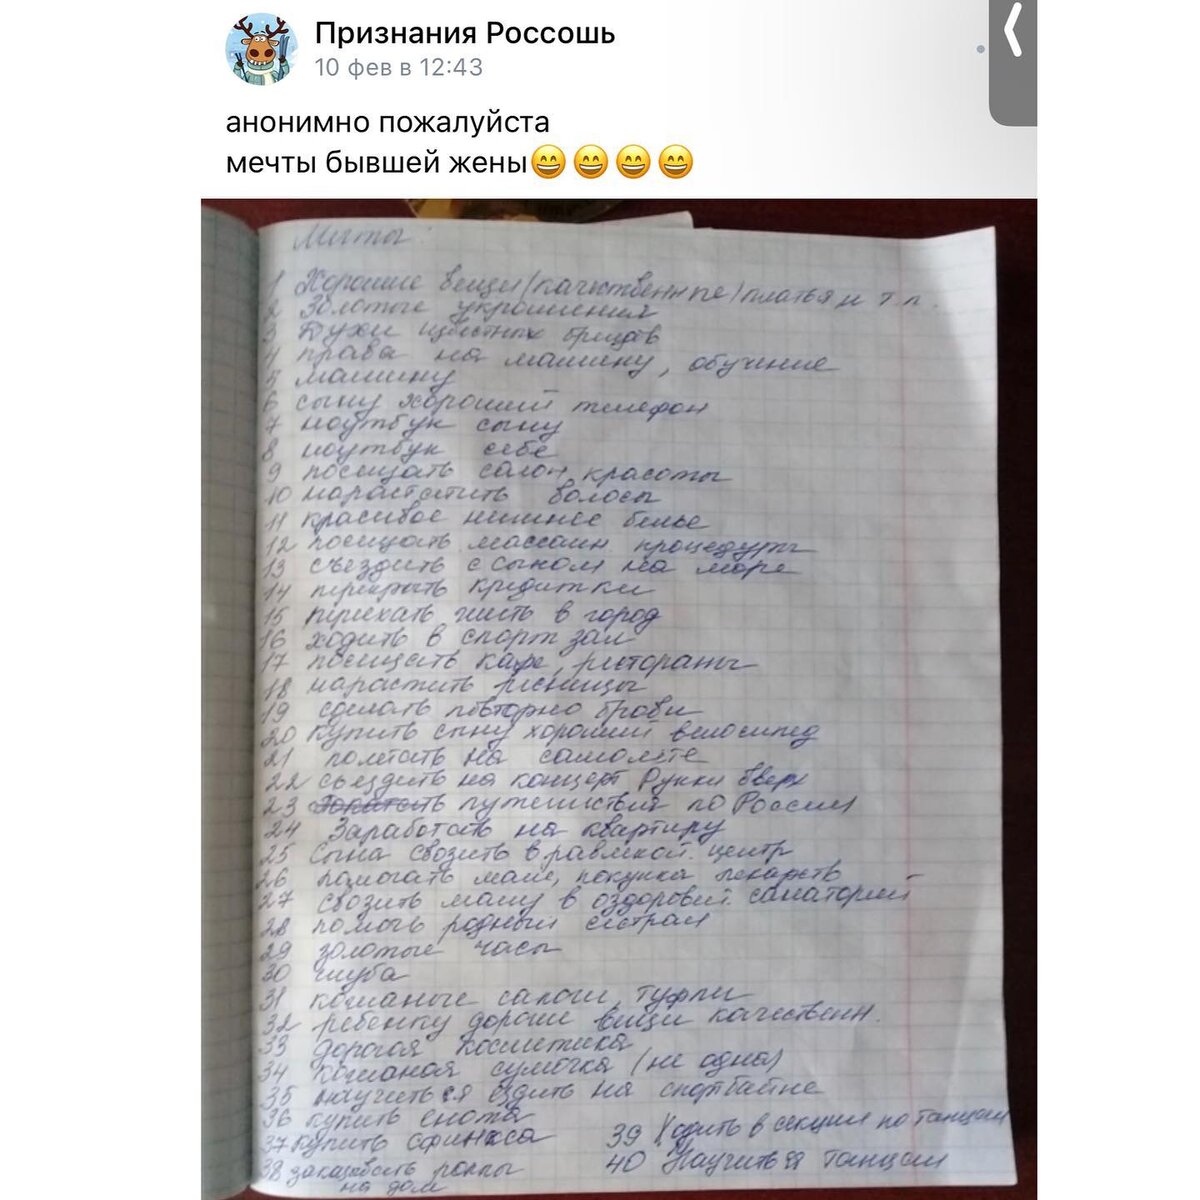 Признания Россошь
10 фев в 12:43
анонимно пожалуйста
мечты бывшей жены😄😄😄😄
Мечты
1 Хорошие вещи (качественные) платья и т.п.
2 Золотые украшения
3 Духи известных брендов
4 права на машину, обучение
5 машину
6 сыну хороший телефон
7 ноутбук сыну
8 ноутбук себе
9 посещать салон красоты
10 нарастить волосы
11 красивое нижнее белье
12 посещать массаж. процедуры
13 съездить с сыном на море
14 перекрыть кредитки
15 приехать жить в город
16 ходить в спорт зал
17 посещать кафе, рестораны
18 нарастить ресницы
19 сделать повторно брови
20 купить сыну хороший велосипед
21 полетать на самолете
22 съездить на концерт Руки вверх
23 путешествия по России
24 Заработать на квартиру
25 Сына свозить в развлекат. центр
26 помогать маме, покупка лекарств
27 свозить маму в оздоровит. санаторий
28 помочь родным сестрам
29 золотые часы
30 шуба
31 кожаные сапоги, туфли
32 ребенку дорогие вещи качественн.
33 дорогая косметика
34 кожаная сумочка (не одна)
35 научиться ездить на спортбайке
36 купить енота
37 купить сфинкса
38 заказывать роллы
на дом
39 Ходить в секции по танцам
40 Научиться танцам